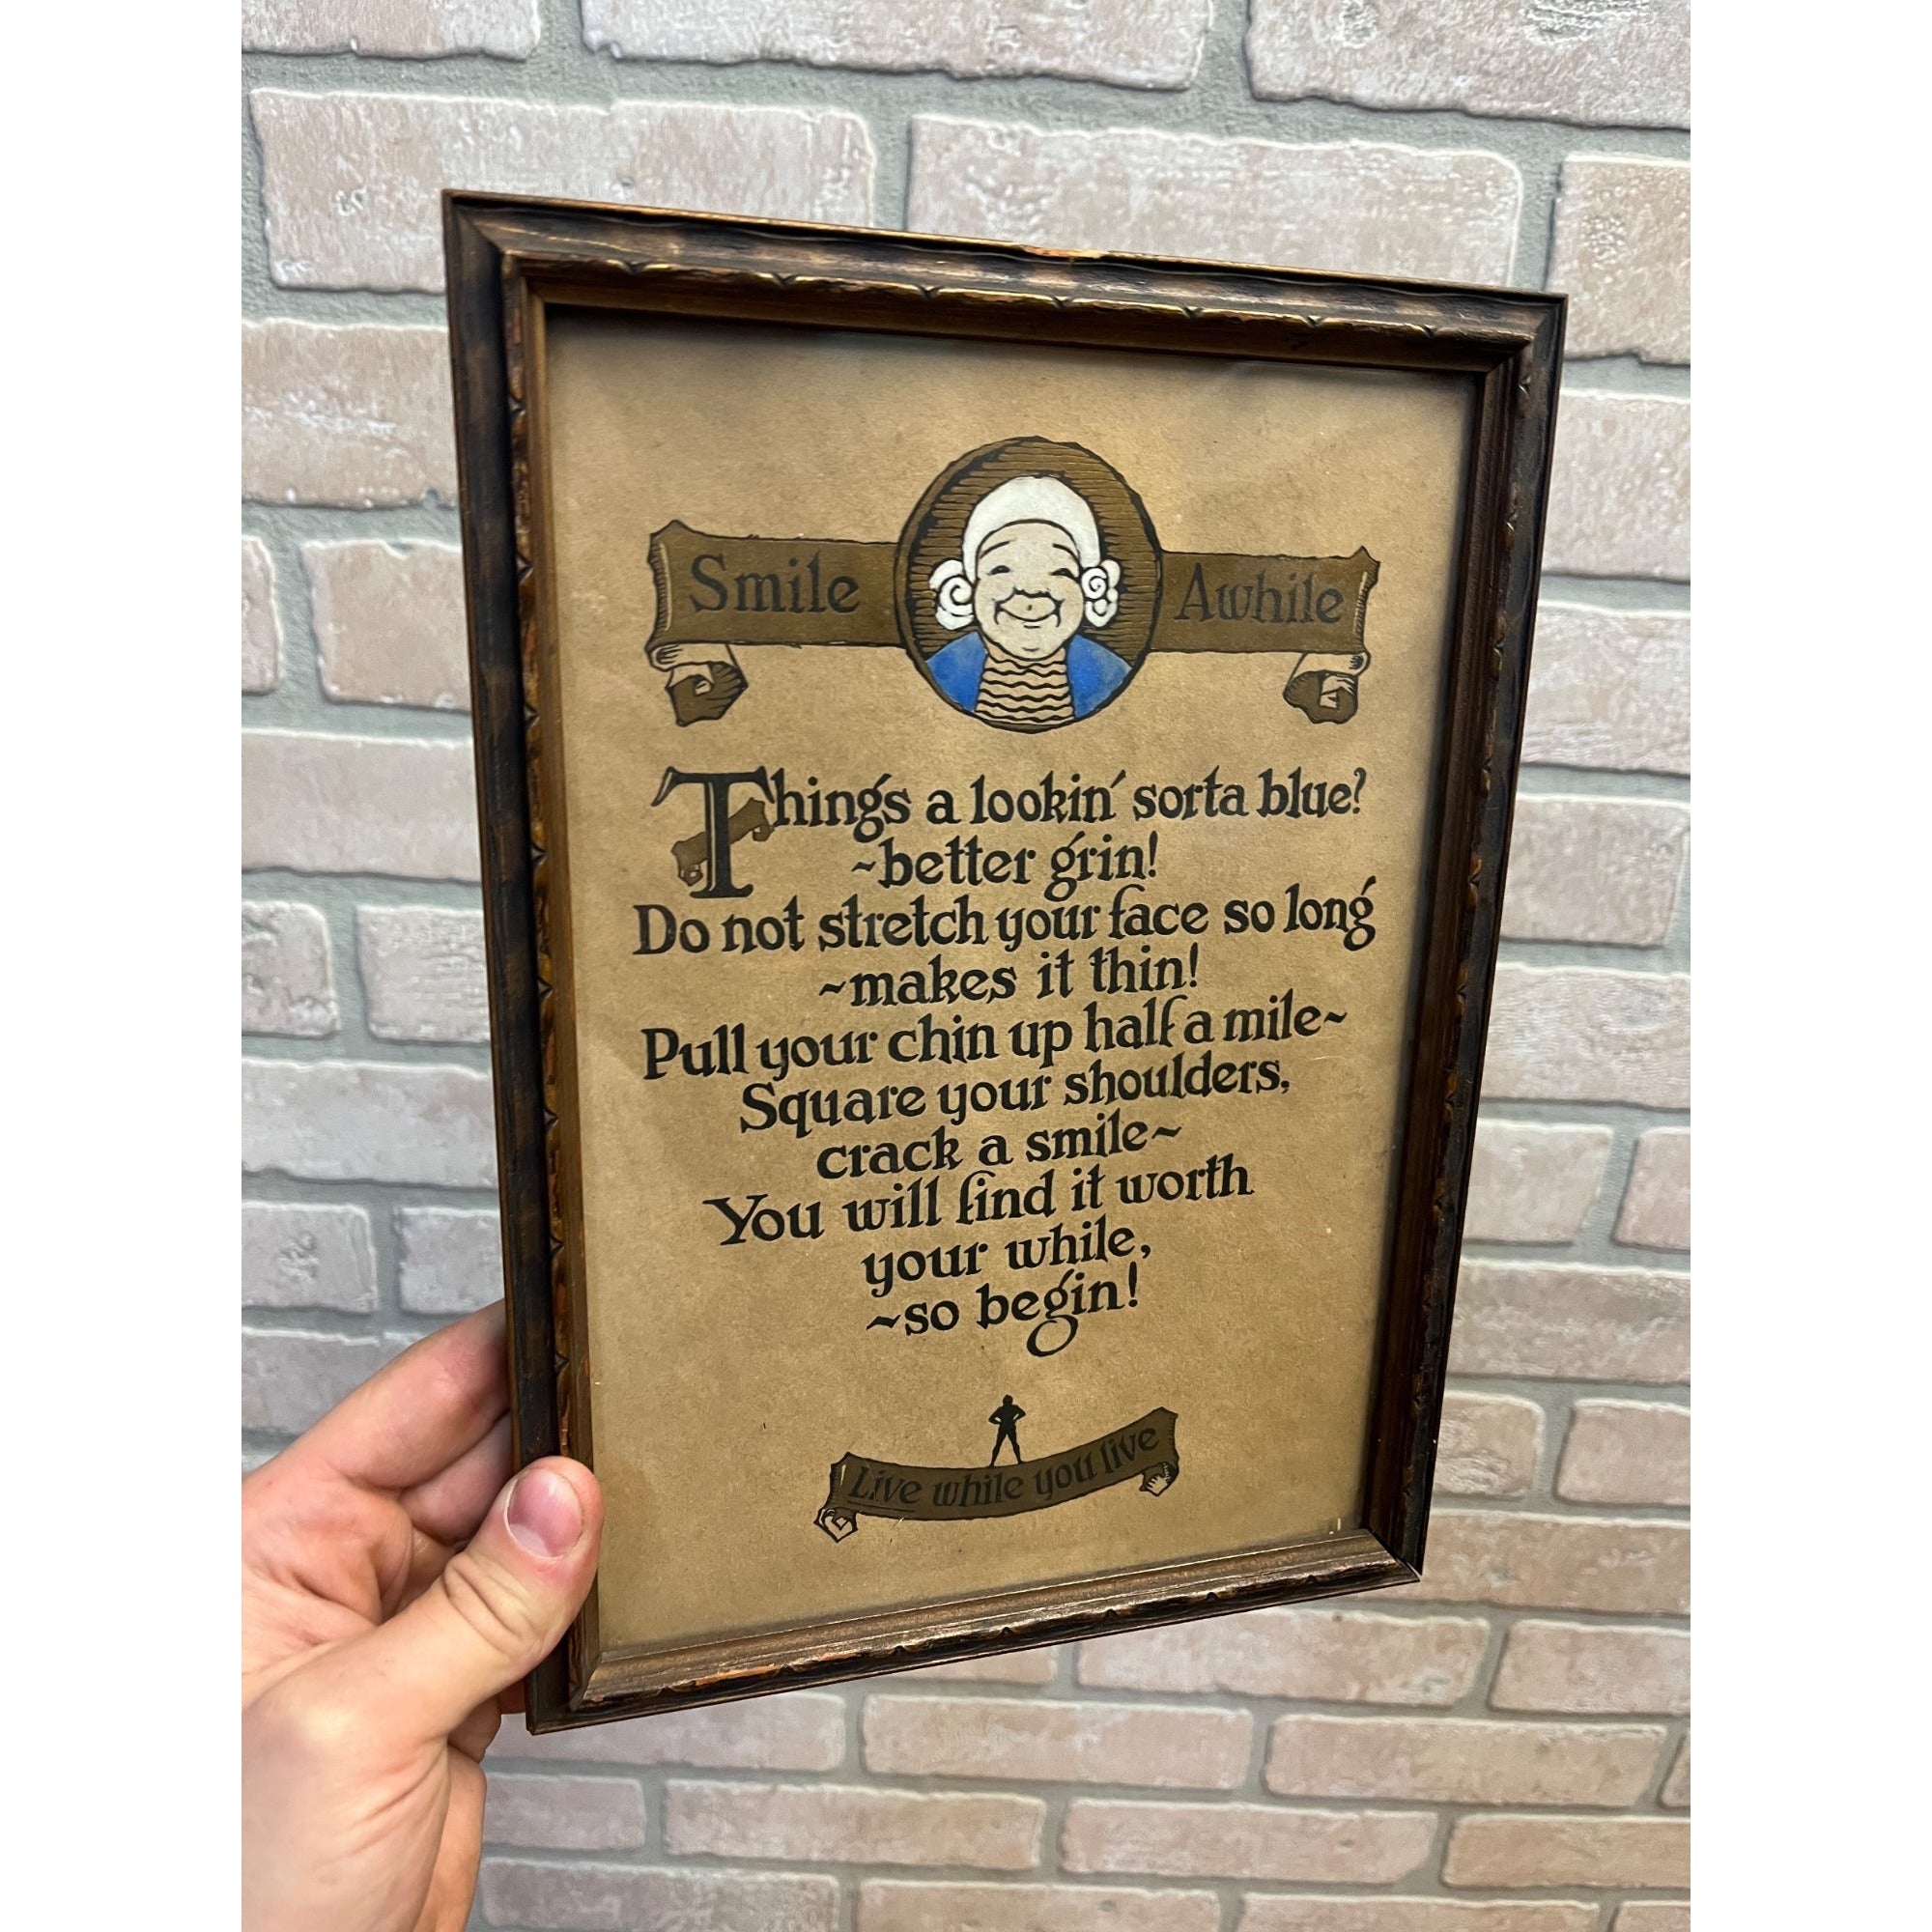 Smile Awhile
Things a lookin' sorta blue?
~better grin!
Do not stretch your face so long
~makes it thin!
Pull your chin up half a mile~
Square your shoulders,
crack a smile~
You will find it worth
your while,
~so begin!
Live while you live